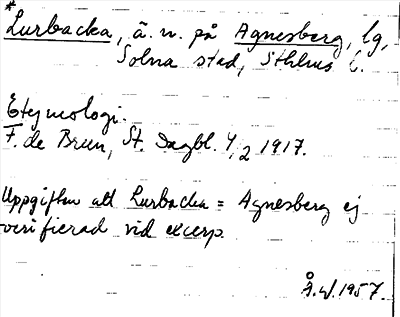 *
Lurbacka, ä. n. på Agnesberg, lg,
Solna stad, Sthlms l.
Etymologi:
F. de Brun, St. Dagbl. 4/2 1917.
Uppgiften att Lurbacka = Agnesberg ej
verifierad vid excerp.
Å.W. 1957.